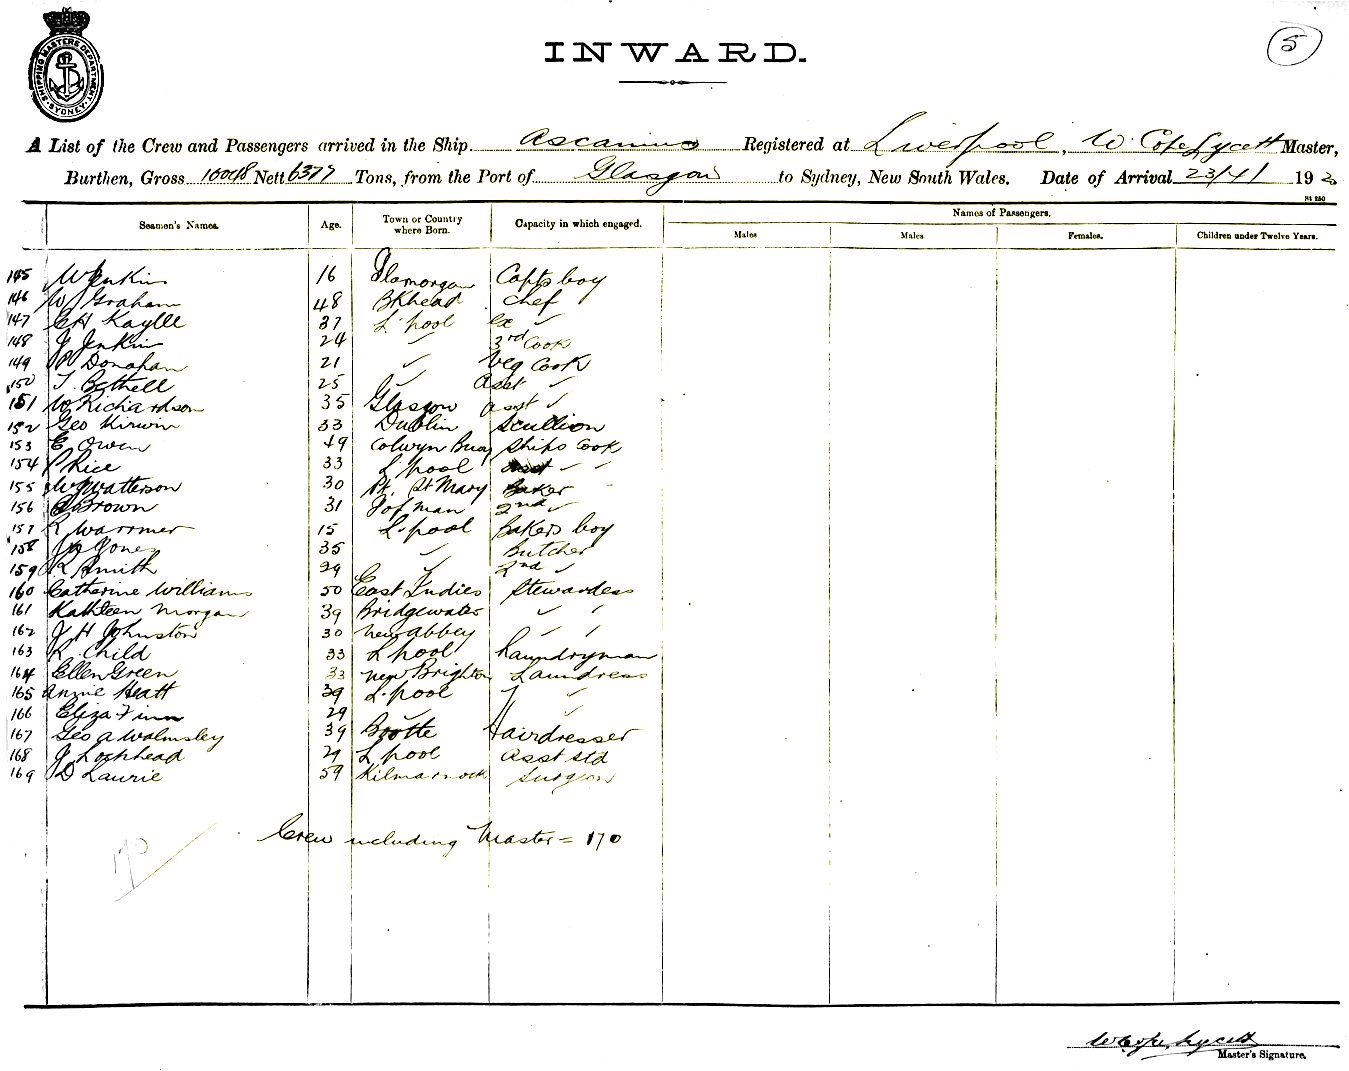 SHIPPING MASTERS DEPARTMENT. SYDNEY
5
INWARD.
A List of the Crew and Passengers arrived in the Ship Ascanius Registered at Liverpool, W. Cope Lycett Master,
Burthen, Gross 10048 Nett 6377 Tons, from the Port of Glasgow to Sydney, New South Wales. Date of Arrival 23/4/ 19
St 250
Seamen's Names. Age. Town or Country where Born. Capacity in which engaged. Names of Passengers.
Males Males Females. Children under Twelve Years.
145 W Jenkins 16 Glamorgan Capts boy
146 W J Graham 48 BKhead Chef
147 C H Kaylle 37 L'pool ex "
148 J Jenkins 24 " 3rd Cook
149 Donohan 21 " Veg Cook
150 T. Bethell 25 " Asst "
151 W Richardson 35 Glasgow asst "
152 Geo Kirwin 33 Dublin Scullion
153 E Owen 49 Colwyn Bay Ships Cook
154 P Rice 33 L'pool " "
155 W J Watterson 30 Pt. St Mary Baker
156 Brown 31 I of man 2nd "
157 R Warrmer 15 L'pool Bakers boy
158 Jones 35 " Butcher
159 R Smith 29 " 2nd "
160 Catherine Williams 50 East Indies Stewardess
161 Kathleen Morgan 39 Bridgewater " "
162 J H Johnston 30 New abbey " "
163 R. Child 33 L'pool Laundryman
164 Ellen Green 33 New Brighton Laundress
165 Annie Heatt 39 L'pool " "
166 Eliza Finn 29 " "
167 Geo A Walmsley 39 Bootle Hairdresser
168 J Lochhead 29 L'pool Asst Std
169 D Laurie 59 Kilmarnock Surgeon
Crew including Master = 170
170
W Cope Lycett
Master's Signature.